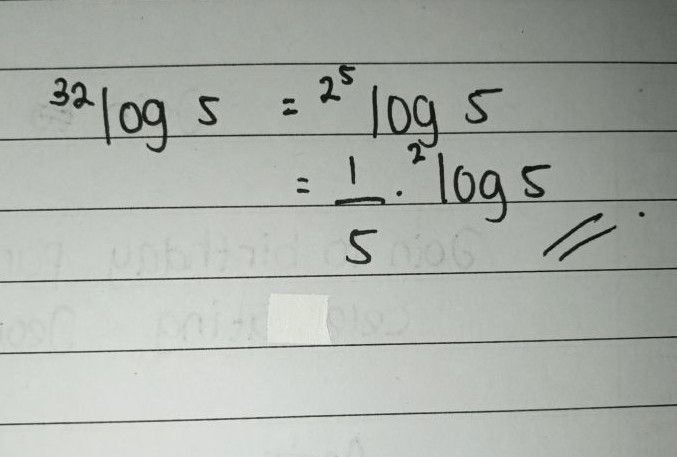 ³²log 5 = ²^⁵log 5
= 1/5 . ²log 5 //.